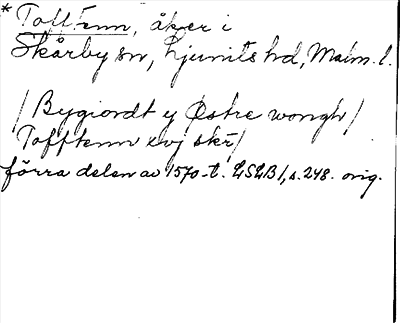 * Tofttenn, åker i
Skårby sn, Ljunits hd, Malm. l.
/Bygiordt y Østre wongh/
Tofftenn xvj skr/
förra delen av 1570-t. LSLB1, s. 248. orig.